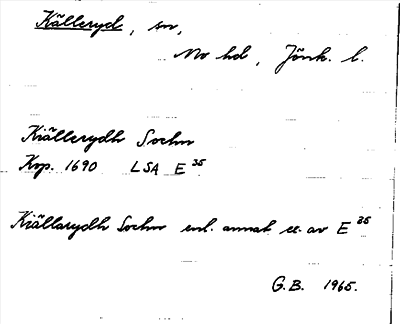 Källeryd, sn,
Mo hd, Jönk. l.
Kiällerydh Sochn
Kop. 1690 LSA E 35
Kiällarydh Sochn enl. annat ex. av E 35
G.B. 1965.